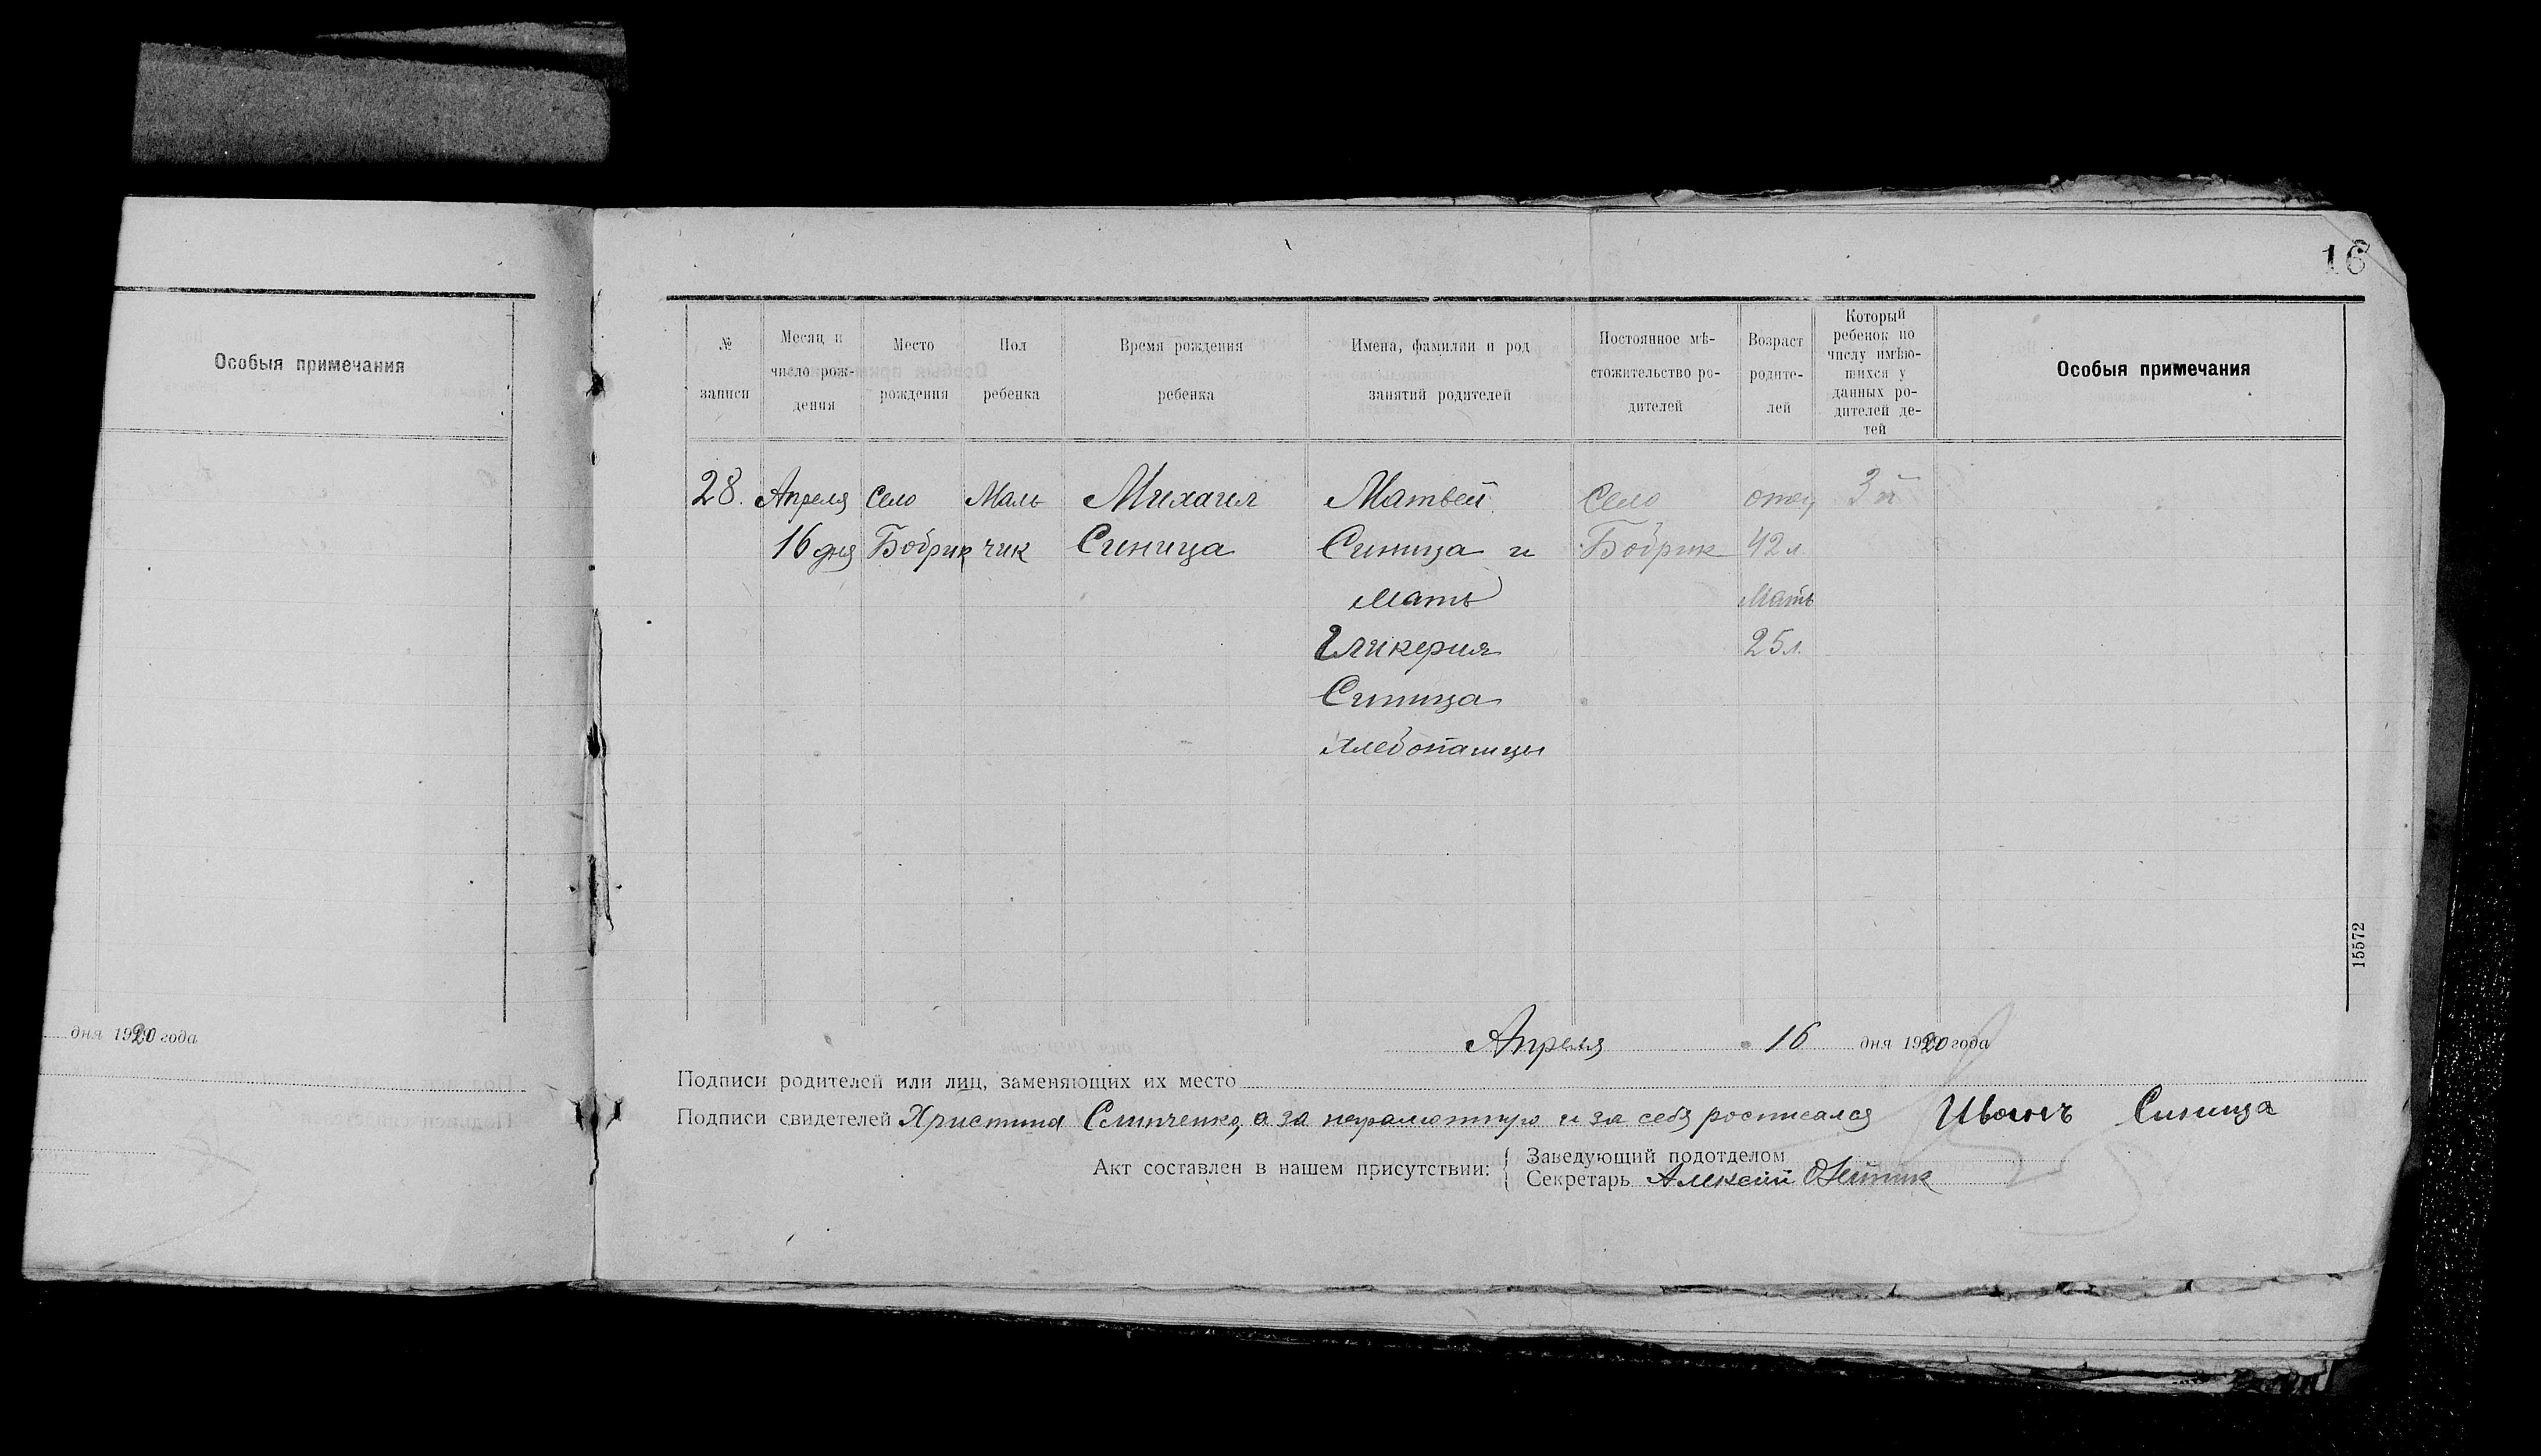 16
Особыя примечания
№ записи
Месяц и число рож-дения
Место рождения
Пол ребенка
Время рождения ребенка
Имена, фамилии и род занятий родителей
Постоянное мѣ-стожительство ро-дителей
Возраст родите-лей
Который ребенок по числу имѣю-щихся у данных ро-дителей де-тей
Особыя примечания
28. Апреля Село Маль Михаил Матвей Село отец 3й
16 дня Бобрик чик Синица Синица и Бобрик 42 л.
мать Мать
Гликерия 25 л.
Синица
хлебопашцы
15572
дня 1920 года
Апреля 16 дня 1920 года
Подписи родителей или лиц, заменяющих их место
Подписи свидетелей Христина Слинченко, а за неграмотную и за себя росписался Иванъ Синица
Акт составлен в нашем присутствии:
Заведующий подотделом
Секретарь Алексий